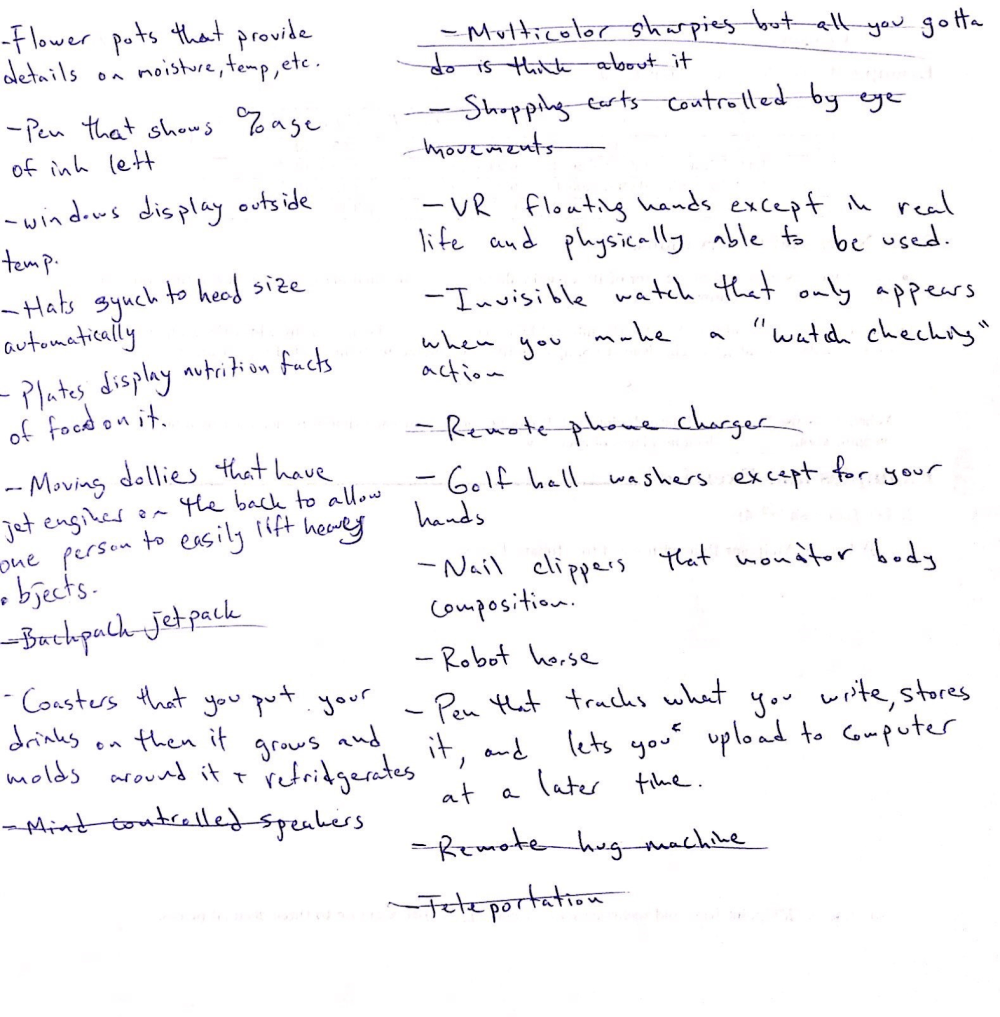 -Flower pots that provide
details on moisture, temp, etc.
-Pen that shows %age
of ink left
-windows display outside
temp.
-Hats synch to head size
automatically
- Plates display nutrition facts
of food on it.
- Moving dollies that have
jet engines on the back to allow
one person to easily lift heavy
objects.
-Backpack jetpack
- Coasters that you put your
drinks on then it grows and
molds around it + refridgerates
- Mind controlled speakers
- Multicolor sharpies but all you gotta
do is think about it
- Shopping carts controlled by eye
movements
- VR floating hands except in real
life and physically able to be used.
- Invisible watch that only appears
when you make a "watch checking"
action
- Remote phone charger
- Golf ball washers except for your
hands
-Nail clippers that monitor body
composition.
- Robot horse
- Pen that tracks what you write, stores
it, and lets you upload to computer
at a later time.
- Remote hug machine
- Teleportation